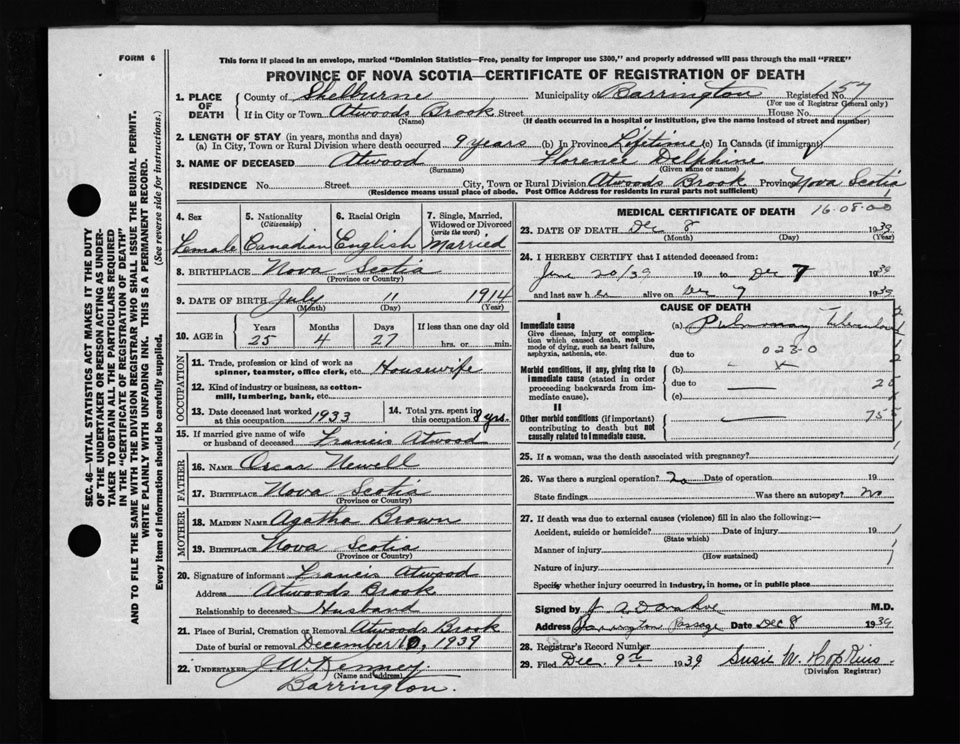 FORM 6
This form if placed in an envelope, marked "Dominion Statistics—Free, penalty for improper use $300," and properly addressed will pass through the mail "FREE"
PROVINCE OF NOVA SCOTIA—CERTIFICATE OF REGISTRATION OF DEATH
SEC. 46—VITAL STATISTICS ACT MAKES IT THE DUTY
OF THE UNDERTAKER OR PERSON ACTING AS UNDER-
TAKER TO OBTAIN ALL THE PARTICULARS REQUIRED
IN THE "CERTIFICATE OF REGISTRATION OF DEATH"
AND TO FILE THE SAME WITH THE DIVISION REGISTRAR WHO SHALL ISSUE THE BURIAL PERMIT.
WRITE PLAINLY WITH UNFADING INK. THIS IS A PERMANENT RECORD.
Every item of information should be carefully supplied. (See reverse side for instructions.)
1. PLACE OF DEATH County of Shelburne Municipality of Barrington Registered No. 157
(For use of Registrar General only)
If in City or Town Atwoods Brook Street House No.
(Name) (If death occurred in a hospital or institution, give the name instead of street and number)
2. LENGTH OF STAY (in years, months and days)
(a) In City, Town or Rural Division where death occurred 9 years (b) In Province Lifetime (c) In Canada (if immigrant)
3. NAME OF DECEASED Atwood Florence Delphine
(Surname) (Given name or names)
RESIDENCE No. Street City, Town or Rural Division Atwoods Brook Province Nova Scotia
(Residence means usual place of abode. Post Office Address for residents in rural parts not sufficient)
4. Sex 5. Nationality (Citizenship) 6. Racial Origin 7. Single, Married, Widowed or Divorced (write the word)
Female Canadian English Married
8. BIRTHPLACE Nova Scotia
(Province or Country)
9. DATE OF BIRTH July 11 1914
(Month) (Day) (Year)
10. AGE in Years Months Days If less than one day old
25 4 27 hrs. or min.
OCCUPATION
11. Trade, profession or kind of work as spinner, teamster, office clerk, etc. Housewife
12. Kind of industry or business, as cotton-mill, lumbering, bank, etc.
13. Date deceased last worked at this occupation 1933 14. Total yrs. spent in this occupation 8 yrs.
15. If married give name of wife or husband of deceased Francis Atwood
FATHER
16. NAME Oscar Newell
17. BIRTHPLACE Nova Scotia
(Province or Country)
MOTHER
18. MAIDEN NAME Agatha Brown
19. BIRTHPLACE Nova Scotia
(Province or Country)
20. Signature of informant Francis Atwood
Address Atwoods Brook
Relationship to deceased Husband
21. Place of Burial, Cremation or Removal Atwoods Brook
Date of burial or removal December 10, 1939
22. UNDERTAKER J. W. Kenney
(Name and address)
Barrington.
MEDICAL CERTIFICATE OF DEATH 16-08-0-0
23. DATE OF DEATH Dec 8 1939
(Month) (Day) (Year)
24. I HEREBY CERTIFY that I attended deceased from:
June 20/39 19 to Dec 7 1939
and last saw her alive on Dec 7 1939
CAUSE OF DEATH
I
Immediate cause (a) Pulmonary
Give disease, injury or complication which caused death, not the mode of dying, such as heart failure, asphyxia, asthenia, etc.
due to 023-0
Morbid conditions, if any, giving rise to immediate cause (stated in order proceeding backwards from immediate cause).
(b)
due to
(c)
II
Other morbid conditions (if important) contributing to death but not causally related to immediate cause.
25. If a woman, was the death associated with pregnancy?
26. Was there a surgical operation? no Date of operation 19
State findings Was there an autopsy? no
27. If death was due to external causes (violence) fill in also the following:—
Accident, suicide or homicide? Date of injury 19
(State which)
Manner of injury
(How sustained)
Nature of injury
Specify whether injury occurred in industry, in home, or in public place
Signed by J. A. Donahoe M.D.
Address Barrington Passage Date Dec 8 1939
28. Registrar's Record Number
29. Filed Dec. 9th 1939 Susie W. Hopkins
(Division Registrar)